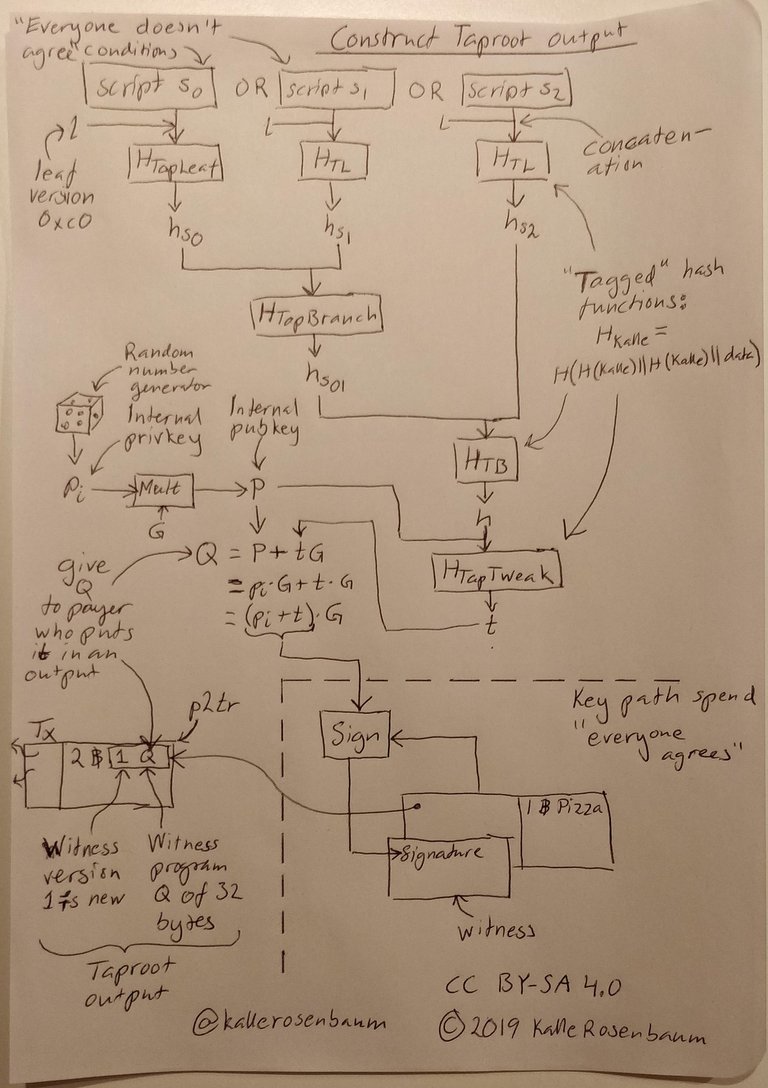 "Everyone doesn't
agree" conditions
Construct Taproot output
script s0 OR script s1 OR script s2
l
leaf
version
0xc0
HTapLeaf
HTL
HTL
concaten-
ation
hs0
hs1
hs2
"Tagged" hash
functions:
HKalle =
H(H(Kalle)||H(Kalle)||data)
HTapBranch
hs01
Random
number
generator
Internal
privkey
Internal
pubkey
HTB
pi
Mult
P
G
h
HTapTweak
t
give
Q
to payer
who puts
it in an
output
Q = P + tG
= pi·G + t·G
= (pi + t)·G
Key path spend
"everyone
agrees"
Sign
p2tr
Tx
2 ₿ 1 Q
1 ₿ Pizza
Signature
witness
Witness
version
1 is new
Witness
program
Q of 32
bytes
Taproot
output
CC BY-SA 4.0
@kallerosenbaum
© 2019 Kalle Rosenbaum